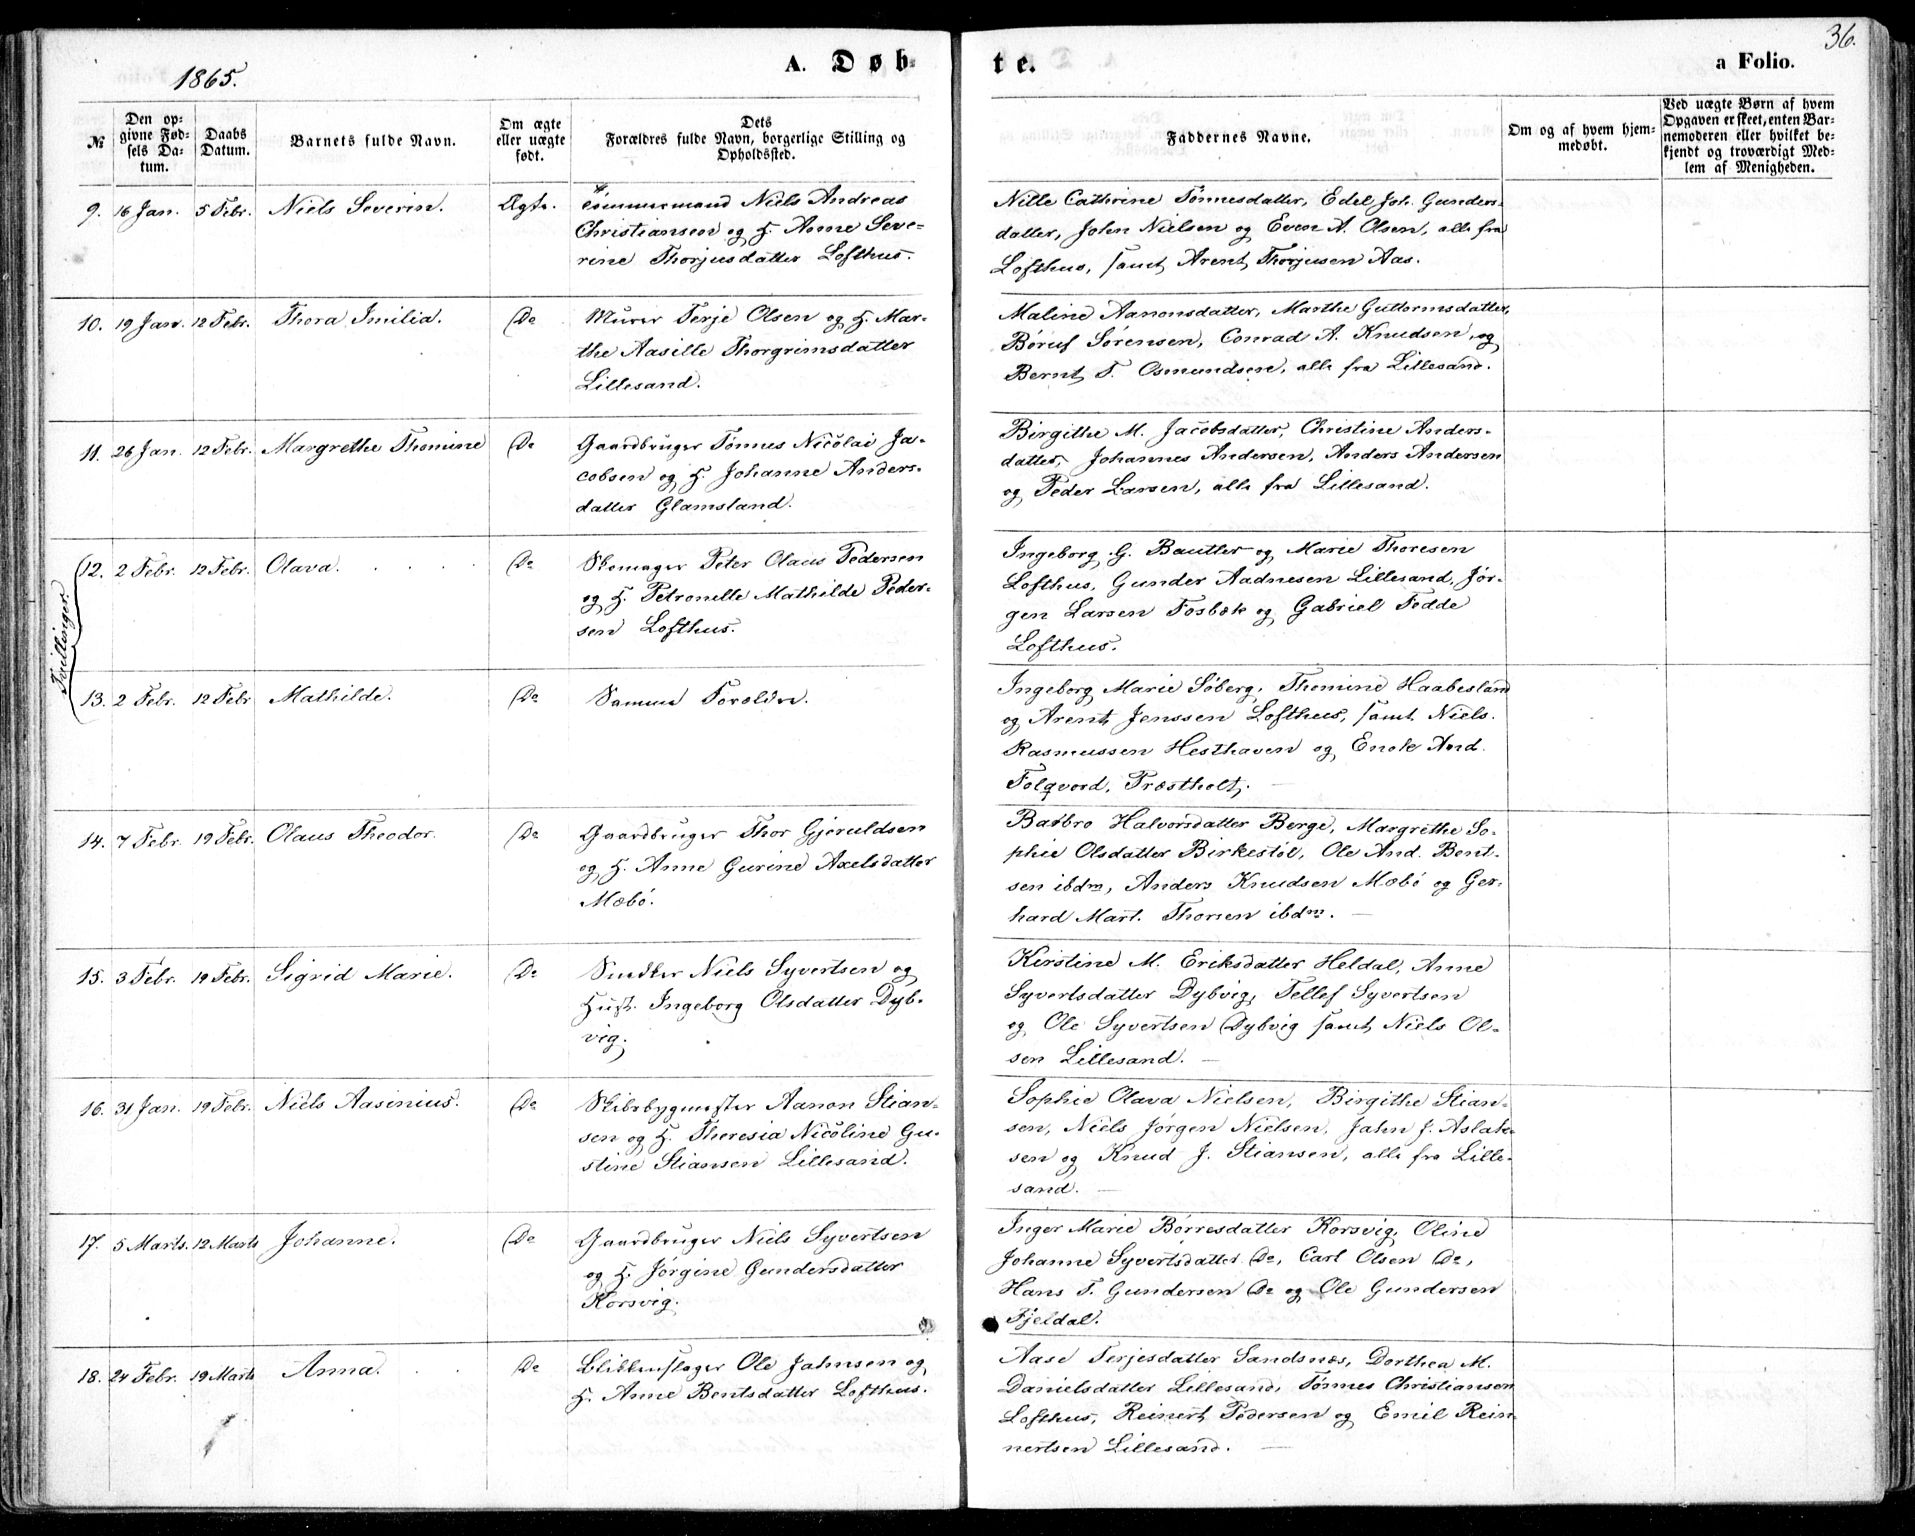 36.
1865.
A. Døb-
te.
a Folio.
№
Den op-
givne Fød-
sels Da-
tum.
Daabs
Datum.
Barnets fulde Navn.
Om ægte
eller uægte
født.
Dets
Forældres fulde Navn, borgerlige Stilling og
Opholdssted.
Faddernes Navne.
Om og af hvem hjem-
medøbt.
Ved uægte Børn af hvem
Opgaven er skeet, enten Bar-
nemoderen eller hvilket be-
kjendt og troværdigt Med-
lem af Menigheden.
9. 16 Jan. 5 Febr. Niels Severin. Ægte. Tømmermand Niels Andreas
Christiansen og H. Anne Seve-
rine Thorjusdatter Lofthus.
Nille Cathrine Tønnesdatter, Edel Joh. Gunders-
datter, John Nielsen og Even A. Olsen, alle fra
Lofthus, samt Arent Thorjusen Aas.
10. 19 Jan. 12 Febr. Thora Imilia. Do Murer Terje Olsen og H. Mar-
the Aasille Thorgrimsdatter
Lillesand.
Maline Aanonsdatter, Marthe Guttormsdatter,
Børuf Sørensen, Conrad A. Knudsen, og
Bernt T. Osmundsen, alle fra Lillesand.
11. 26 Jan. 12 Febr. Margrethe Thomine Do Gaardbruger Tønnes Nicolai Ja-
cobsen og H. Johanne Anders-
datter Glamsland.
Birgithe M. Jacobsdatter, Christine Anders-
datter, Johannes Andersen, Anders Andersen
og Peder Larsen, alle fra Lillesand.
Tvillinger.
12. 2 Febr. 12 Febr. Olava. Do Skomager Peter Olaus Pedersen
og H. Petronelle Mathilde Peder-
sen Lofthus.
Ingeborg G. Bautler og Marie Thoresen
Lofthus, Gunder Aadnesen Lillesand, Jør-
gen Larsen Fosbæk og Gabriel Fedde
Lofthus.
13. 2 Febr. 12 Febr Mathilde. Do Samme Forældre.
Ingeborg Marie Søberg, Thomine Haabesland
og Arent Jenssen Lofthus, samt Niels
Rasmussen Hesthaven og Enok And.
Folqvord, Træstholt.
14. 7 Febr. 19 Febr. Olaus Theodor. Do Gaardbruger Thor Gjeruldsen
og H. Anne Gurine Axelsdatter
Mæbø.
Barbro Halvorsdatter Berge, Margrethe So-
phie Olsdatter Birkestøl, Ole And. Bent-
sen ibdm, Anders Knudsen Mæbø og Ger-
hard Mart. Thorsen ibdm.
15. 3 Febr. 19 Febr. Sigrid Marie. Do Snedker Niels Syvertsen og
Hust. Ingeborg Olsdatter Dyb-
vig.
Kirstine M. Eriksdatter Heldal, Anne
Syvertsdatter Dybvig, Tellef Syvertsen
og Ole Syvertsen Dybvig samt Niels Ol-
sen Lillesand.
16. 31 Jan. 19 Febr. Niels Aasinius. Do Skibsbygmester Aanon Stian-
sen og H. Theresia Nicoline Gu-
stine Stiansen Lillesand.
Sophie Olava Nielsen, Birgithe Stian-
sen, Niels Jørgen Nielsen, Jahn J. Aslak-
sen og Knud J. Stiansen, alle fra Lille-
sand.
17. 5 Marts. 12 Marts Johanne. Do Gaardbruger Niels Syvertsen
og H. Jørgine Gundersdatter
Korsvig.
Inger Marie Børresdatter Korsvig, Oline
Johanne Syvertsdatter Do, Carl Olsen Do,
Hans T. Gundersen Do og Ole Gundersen
Fjeldal.
18. 24 Febr. 19 Marts Anna. Do Blikkenslager Ole Jahnsen og
H. Anne Bentsdatter Lofthus.
Aase Terjesdatter Sandsnæs, Dorthea M.
Danielsdatter Lillesand, Tønnes Christiansen
Lofthus, Reinert Pedersen og Emil Rein-
nertsen Lillesand.